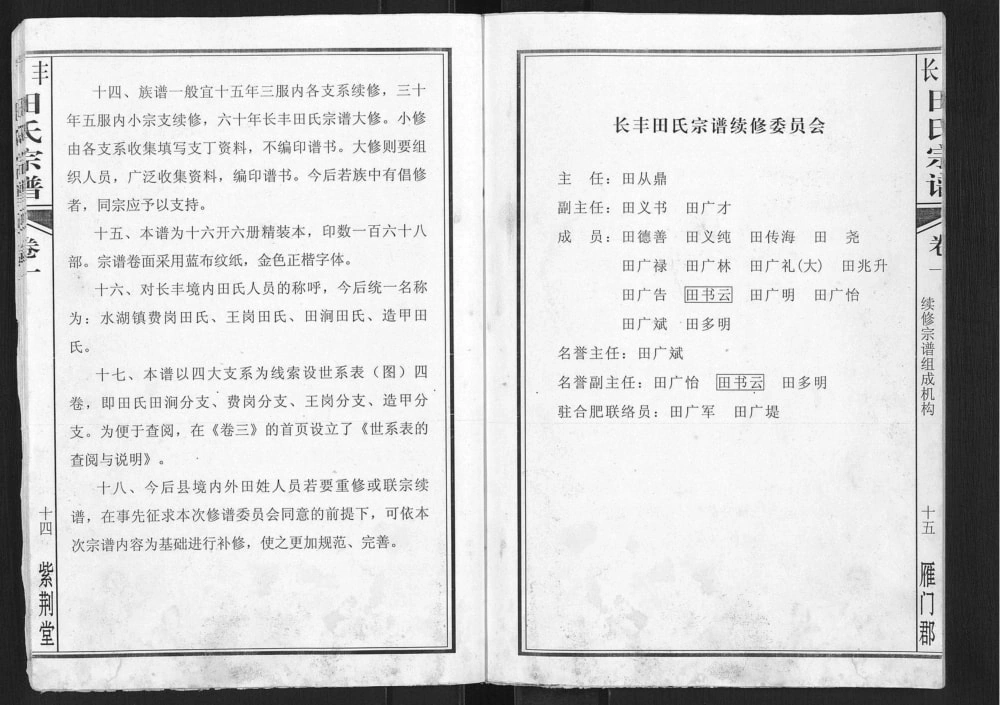 丰
田氏宗谱
卷一
十四、族谱一般宜十五年三服内各支系续修，三十
年五服内小宗支续修，六十年长丰田氏宗谱大修。小修
由各支系收集填写支丁资料，不编印谱书。大修则要组
织人员，广泛收集资料，编印谱书。今后若族中有倡修
者，同宗应予以支持。
十五、本谱为十六开六册精装本，印数一百六十八
部。宗谱卷面采用蓝布纹纸，金色正楷字体。
十六、对长丰境内田氏人员的称呼，今后统一名称
为：水湖镇费岗田氏、王岗田氏、田涧田氏、造甲田
氏。
十七、本谱以四大支系为线索设世系表（图）四
卷，即田氏田涧分支、费岗分支、王岗分支、造甲分
支。为便于查阅，在《卷三》的首页设立了《世系表的
查阅与说明》。
十八、今后县境内外田姓人员若要重修或联宗续
谱，在事先征求本次修谱委员会同意的前提下，可依本
次宗谱内容为基础进行补修，使之更加规范、完善。
十四
紫荆堂
长丰田氏宗谱续修委员会
主　任：田从鼎
副主任：田义书　田广才
成　员：田德善　田义纯　田传海　田　尧
田广禄　田广林　田广礼(大)　田兆升
田广告　田书云　田广明　田广怡
田广斌　田多明
名誉主任：田广斌
名誉副主任：田广怡　田书云　田多明
驻合肥联络员：田广军　田广堤
长
田氏宗谱
卷一
续修宗谱组成机构
十五
雁门郡